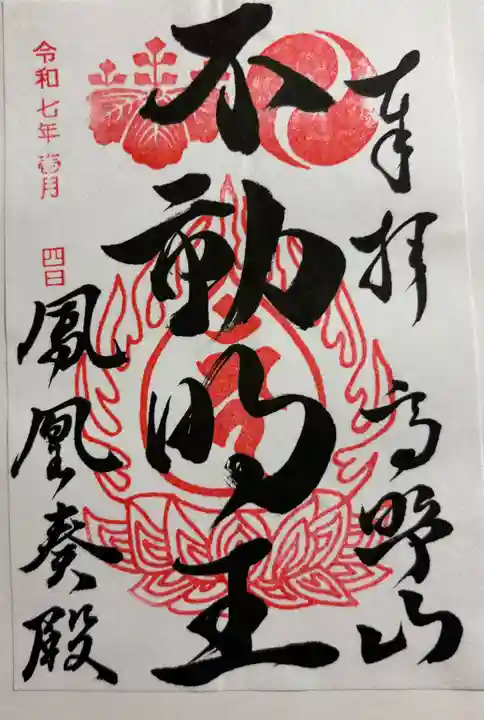 奉拝 高野山
不動明王
令和七年壹月 四日
鳳凰奏殿